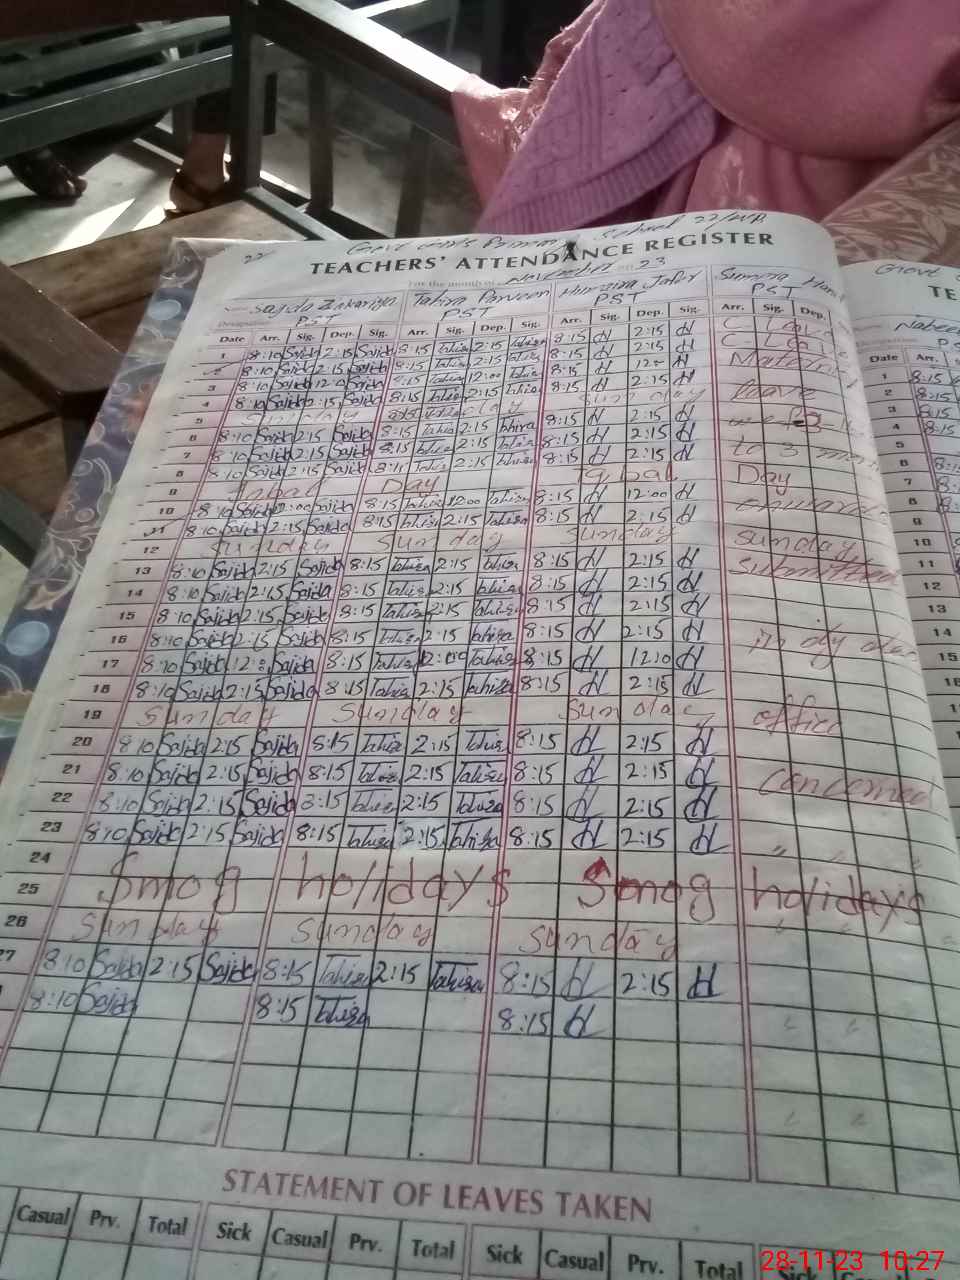 22 Govt Girls Primary School 22/WB
TEACHERS' ATTENDANCE REGISTER
For the month of November 23
Sajida Zakariya Tahira Parveen Humaira Jafer
PST PST PST PST
Date Arr. Sig. Dep. Sig. Arr. Sig. Dep. Sig. Arr. Sig. Dep. Sig. Arr. Sig. Dep.
1 8:10 Sajida 2:15 Sajida 8:15 Tahira 2:15 Tahira 8:15 H 2:15 H C-Leave
2 8:10 Sajida 2:15 Sajida 8:15 Tahira 2:15 Tahira 8:15 H 2:15 H C-Leave
3 8:10 Sajida 12:0 Sajida 8:15 Tahira 12:00 Tahira 8:15 H 12:0 H
4 8:10 Sajida 2:15 Sajida 8:15 Tahira 2:15 Tahira 8:15 H 2:15 H leave
5 Sunday Sunday
6 8:10 Sajida 2:15 Sajida 8:15 Tahira 2:15 Tahira 8:15 H 2:15 H to 3
7 8:10 Sajida 2:15 Sajida 8:15 Tahira 2:15 Tahira 8:15 H 2:15 H
8 8:10 Sajida 2:15 Sajida 8:15 Tahira 2:15 Tahira 8:15 H 2:15 H
9 Iqbal Day Iqbal Day
10 8:10 Sajida 12:00 Sajida 8:15 Tahira 12:00 Tahira 8:15 H 12:00 H
11 8:10 Sajida 2:15 Sajida 8:15 Tahira 2:15 Tahira 8:15 H 2:15 H
12 Sunday Sunday Sunday Sunday
13 8:10 Sajida 2:15 Sajida 8:15 Tahira 2:15 Tahira 8:15 H 2:15 H submitted
14 8:10 Sajida 2:15 Sajida 8:15 Tahira 2:15 Tahira 8:15 H 2:15 H
15 8:10 Sajida 2:15 Sajida 8:15 Tahira 2:15 Tahira 8:15 H 2:15 H
16 8:10 Sajida 2:15 Sajida 8:15 Tahira 2:15 Tahira 8:15 H 2:15 H in
17 8:10 Sajida 12:0 Sajida 8:15 Tahira 12:00 Tahira 8:15 H 12:0 H
18 8:10 Sajida 2:15 Sajida 8:15 Tahira 2:15 Tahira 8:15 H 2:15 H
19 Sunday Sunday Sunday office
20 8:10 Sajida 2:15 Sajida 8:15 Tahira 2:15 Tahira 8:15 H 2:15 H
21 8:10 Sajida 2:15 Sajida 8:15 Tahira 2:15 Tahira 8:15 H 2:15 H concerned
22 8:10 Sajida 2:15 Sajida 8:15 Tahira 2:15 Tahira 8:15 H 2:15 H
23 8:10 Sajida 2:15 Sajida 8:15 Tahira 2:15 Tahira 8:15 H 2:15 H
24
25 Smog holidays Smog holidays
26 Sunday Sunday Sunday
27 8:10 Sajida 2:15 Sajida 8:15 Tahira 2:15 Tahira 8:15 H 2:15 H
8:10 Sajida 8:15 Tahira 8:15 H
STATEMENT OF LEAVES TAKEN
Casual Prv. Total Sick Casual Prv. Total Sick Casual Prv. Total Sick
Govt
TE
Date Arr.
1 8:15
2 8:15
3 8:15
4 8:15
5
6
7
8
9
10
11
12
13
14
15
16
28-11-23 10:27